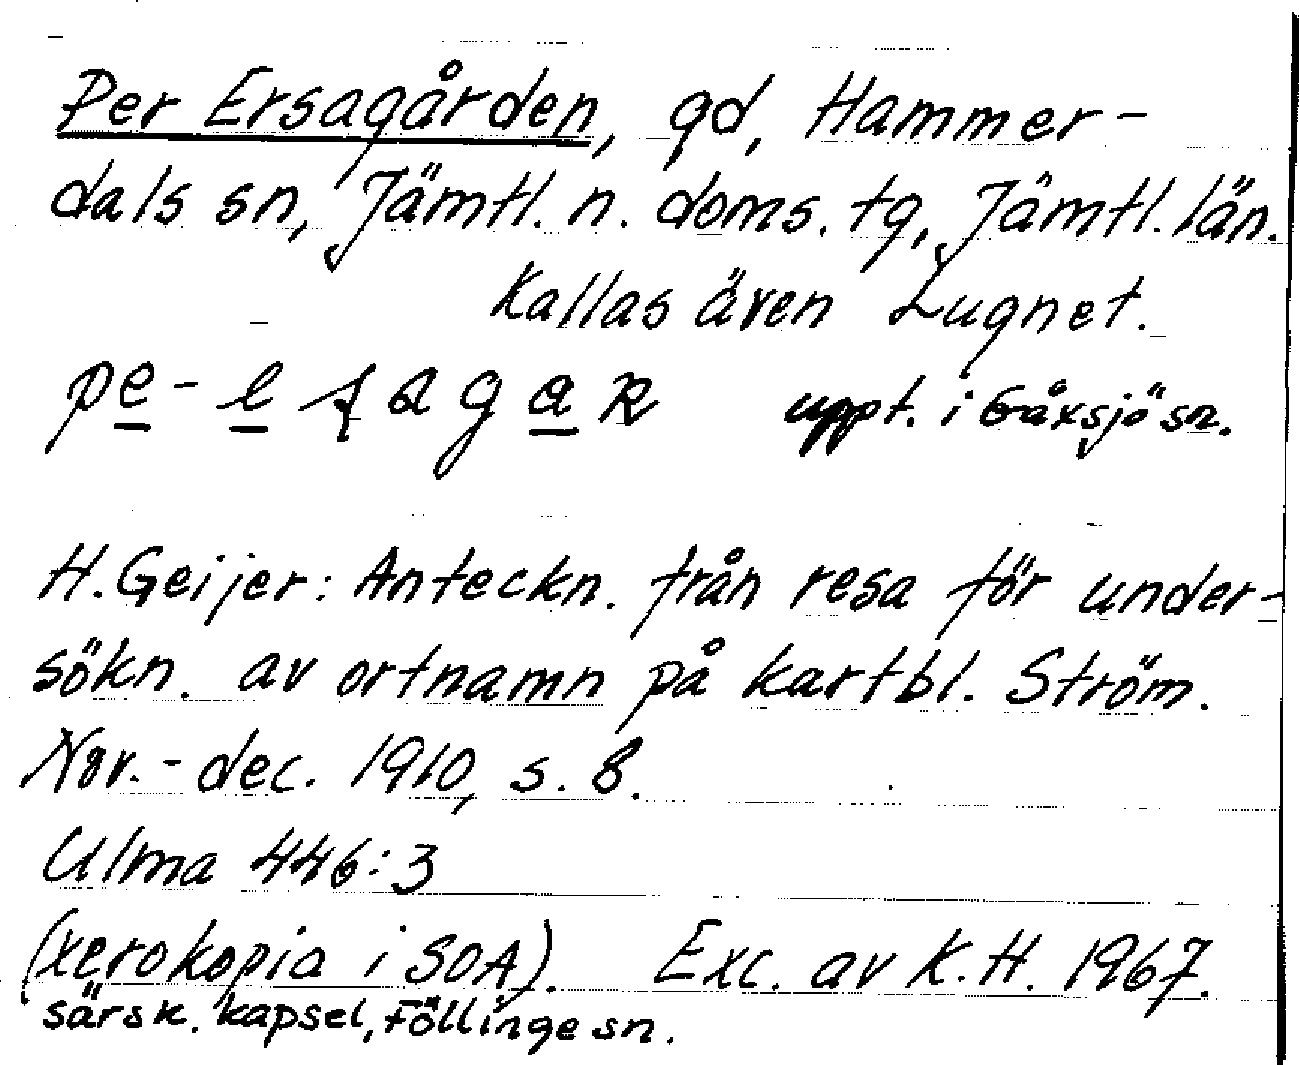 Per Ersagården, gd, Hammer-
dals sn, Jämtl. n. doms. tg, Jämtl. län.
Kallas även Lugnet.
pe-e ʄagaʀ uppt. i Gåxsjö sn.
H. Geijer: Anteckn. från resa för under-
sökn. av ortnamn på kartbl. Ström.
Nov. - dec. 1910, s. 8.
Ulma 446:3
(xerokopia i SOA). Exc. av K.H. 1967.
särsk. kapsel, Föllinge sn.